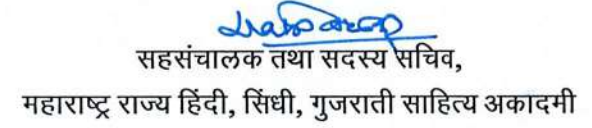 सहसंचालक तथा सदस्य सचिव,
महाराष्ट्र राज्य हिंदी, सिंधी, गुजराती साहित्य अकादमी